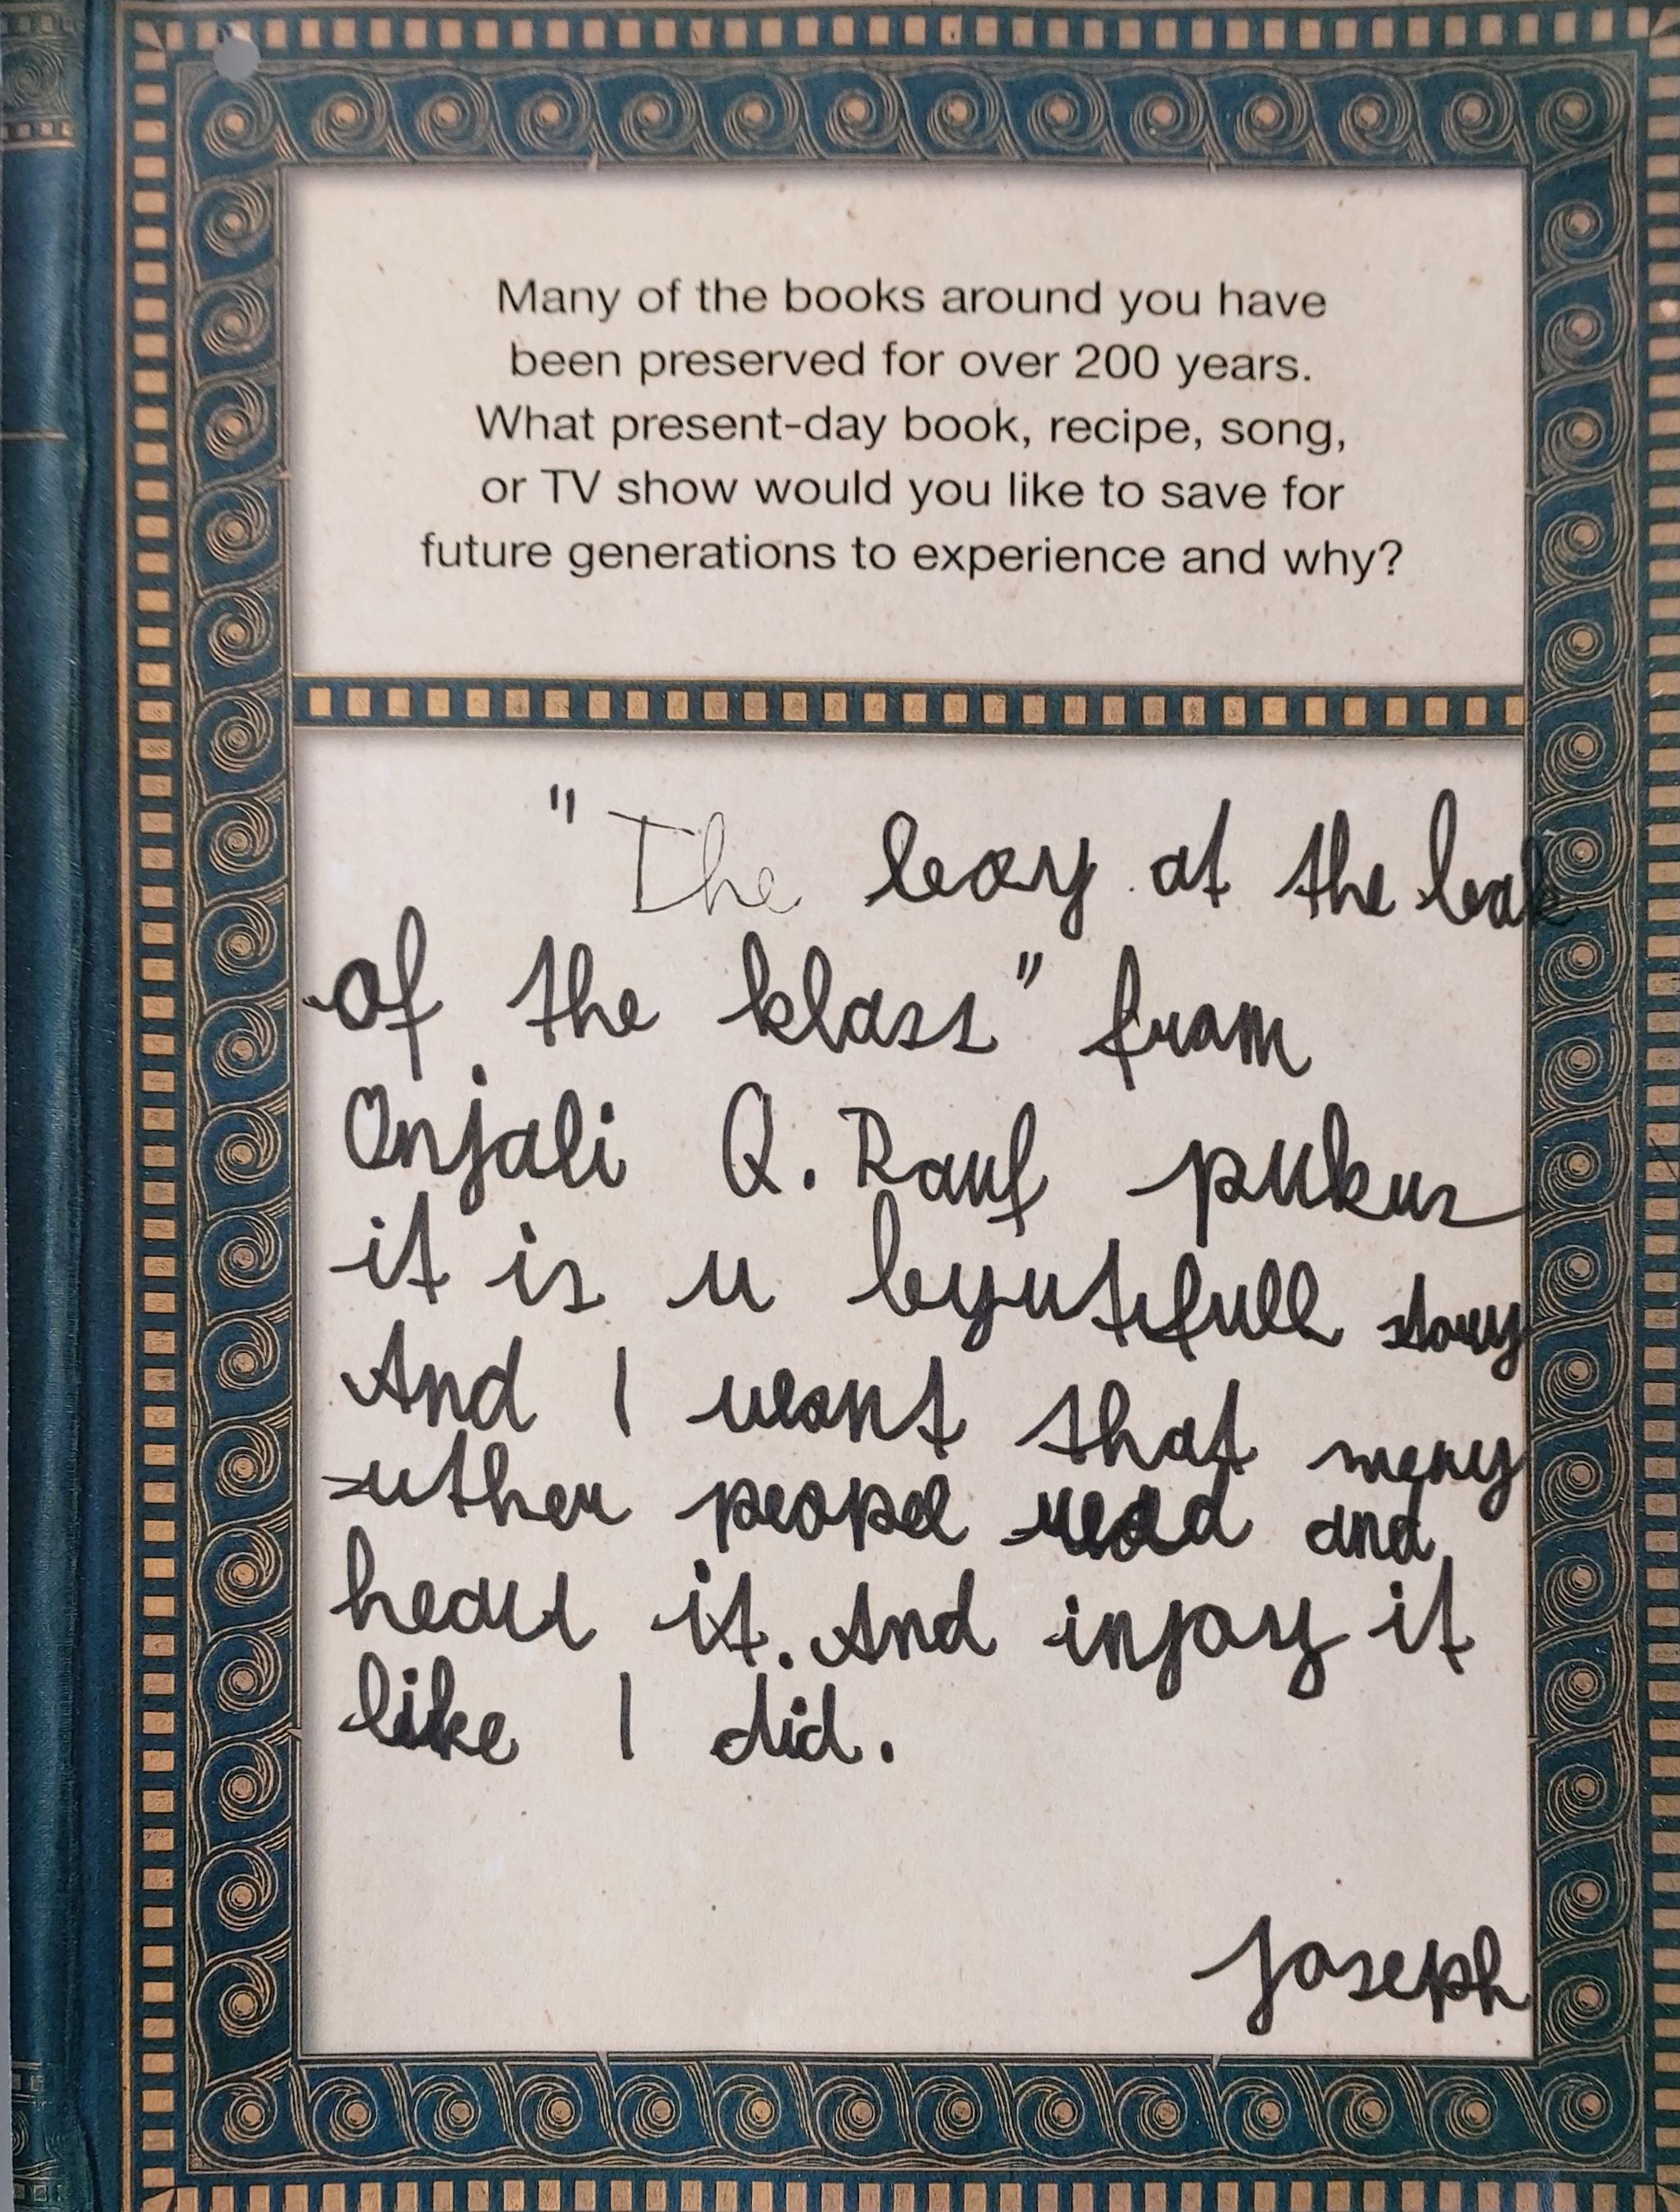 Many of the books around you have
been preserved for over 200 years.
What present-day book, recipe, song,
or TV show would you like to save for
future generations to experience and why?
"The boay at the bak
of the klass" fram
Onjali Q. Rauf pukus
it is u byutifull story
And I want that meny
uther peopel read and
heart it. And injoay it
like I did.
Joseph